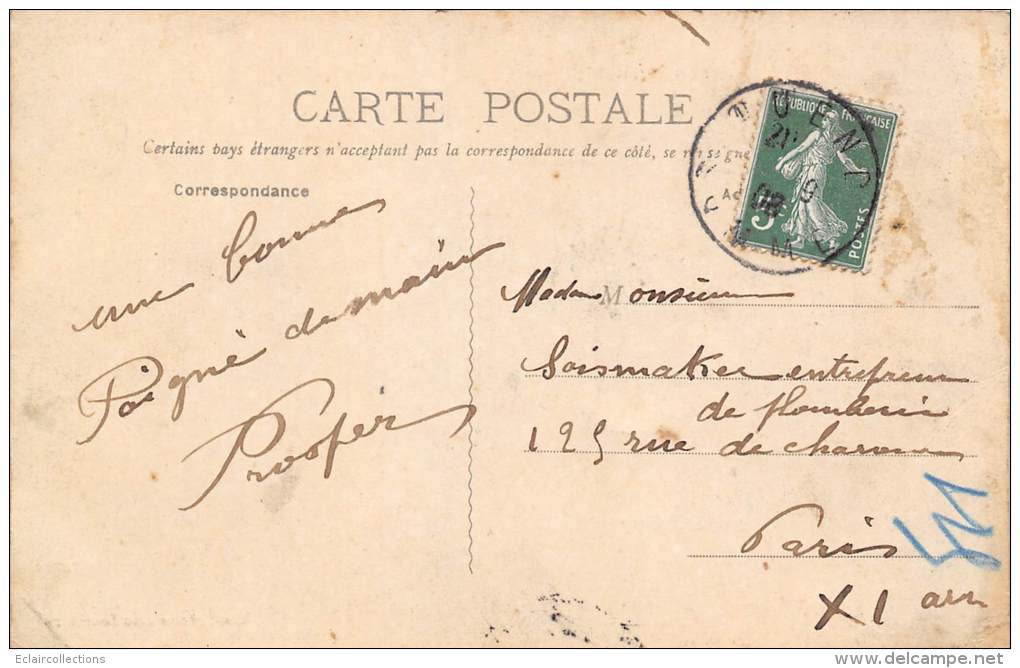 CARTE POSTALE
Certains pays étrangers n'acceptant pas la correspondance de ce côté, se renseigne
Correspondance
une bonne
Poigné de main
Prosper
RÉPUBLIQUE FRANÇAISE
POSTES
5c
21
9
08
Madame Monsieur
Soismaker entrepreneur
de plomberie
125 rue de charonne
Paris
XI arr
Eclaircollections
delcampe.net